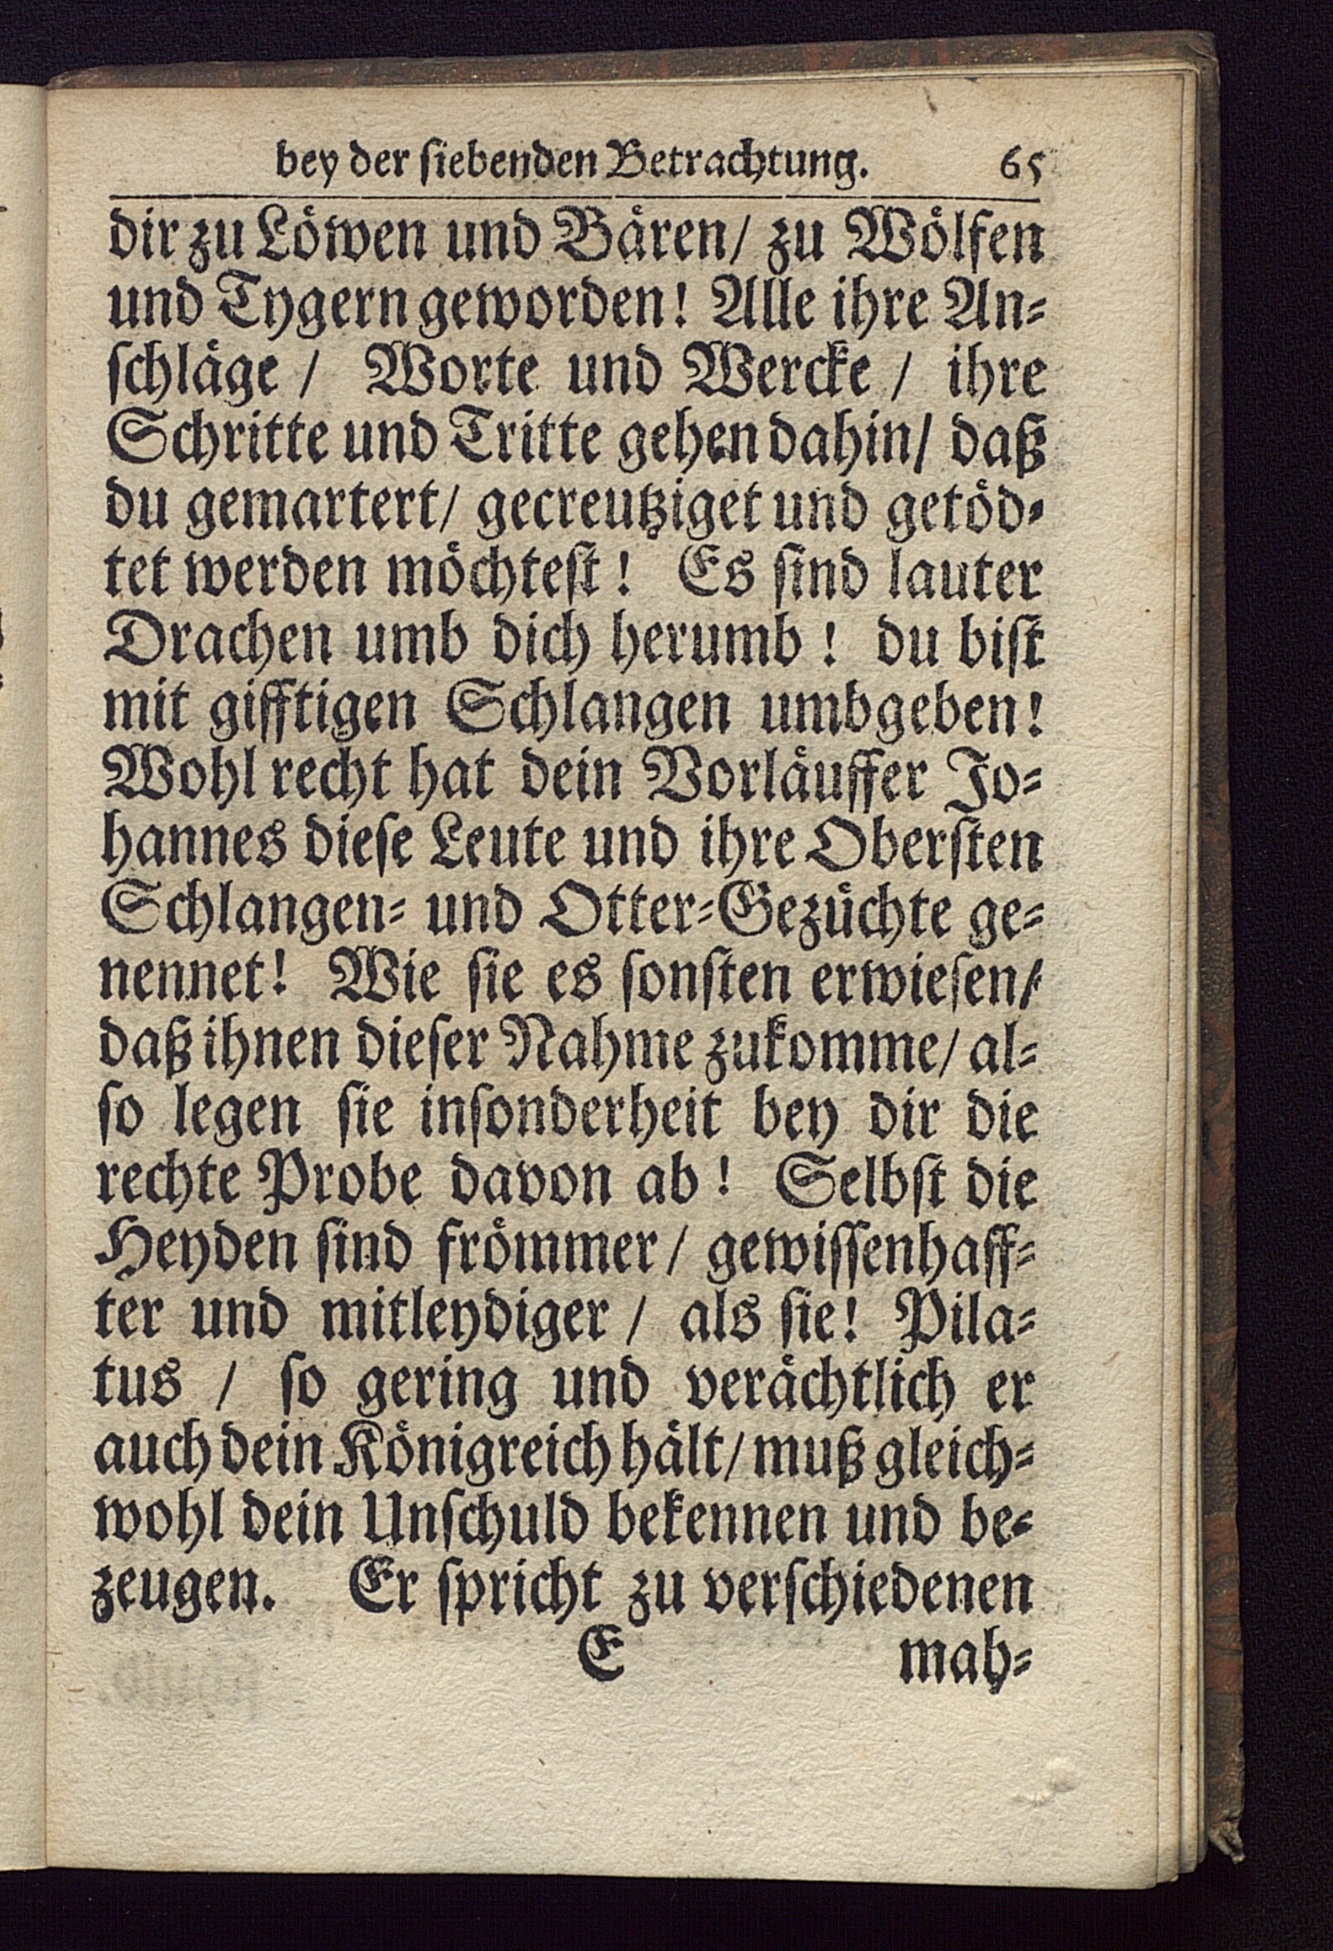 bey der siebenden Betrachtung. 65
dir zu Löwen und Bären/ zu Wölfen
und Tygern geworden! Alle ihre An-
schläge / Worte und Wercke / ihre
Schritte und Tritte gehen dahin/ daß
du gemartert/ gecreutziget und getöd-
tet werden möchtest! Es sind lauter
Drachen umb dich herumb! du bist
mit gifftigen Schlangen umbgeben!
Wohl recht hat dein Vorläuffer Jo-
hannes diese Leute und ihre Obersten
Schlangen- und Otter-Gezüchte ge-
nennet! Wie sie es sonsten erwiesen/
daß ihnen dieser Nahme zukomme/ al-
so legen sie insonderheit bey dir die
rechte Probe davon ab! Selbst die
Heyden sind frömmer/ gewissenhaff-
ter und mitleydiger / als sie! Pila-
tus / so gering und verächtlich er
auch dein Königreich hält/ muß gleich-
wohl dein Unschuld bekennen und be-
zeugen. Er spricht zu verschiedenen
E mah-